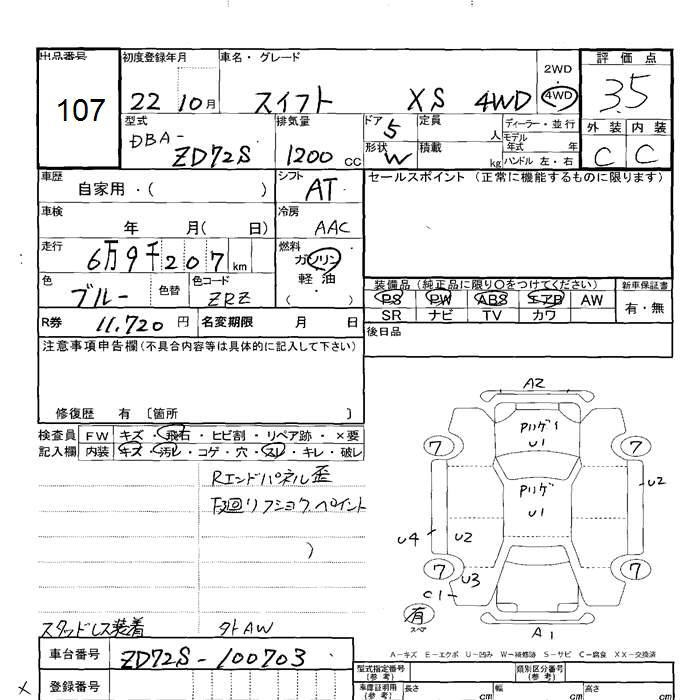 出品番号 初度登録年月 車名・グレード 評価点
107 22 10月 スイフト XS 4WD 2WD・4WD 3.5
型式 排気量 ドア 5 定員 人 ディーラー・並行 外装 内装
DBA-ZD72S 1200cc 形状 W 積載 kg モデル年式 年 C C
ハンドル 左・右
車歴 自家用・( ) シフト AT セールスポイント (正常に機能するものに限ります)
車検 年 月( 日) 冷房 AAC
走行 6万9千207km 燃料 ガソリン
軽・油
・( )
色 ブルー 色替 色コード ZRZ
装備品 (純正品に限り○をつけてください) 新車保証書
PS PW ABS エアB AW 有・無
SR ナビ TV カワ
R券 11,720円 名変期限 月 日 後日品
注意事項申告欄 (不具合内容等は具体的に記入して下さい)
修復歴 有 〔箇所 〕
検査員記入欄 FW キズ・飛石・ヒビ割・リペア跡・×要
内装 キズ・汚レ・コゲ・穴・スレ・キレ・破レ
Rエンドパネル歪
下廻リフショク、ペイント
)
スタッドレス装着 外AW
車台番号 ZD72S-100703
登録番号
×
A2
Pリゲイ
U1
7 7
U2
Pリゲ
U1
U4 U2
7 7
U3
C1
有
スペ
A1
A-キズ E-エクボ U-凹み W-補修跡 S-サビ C-腐食 XX-交換済
型式指定番号 (参考) 類別区分番号 (参考)
車庫証明用 (参考) 長さ cm 幅 cm 高さ cm